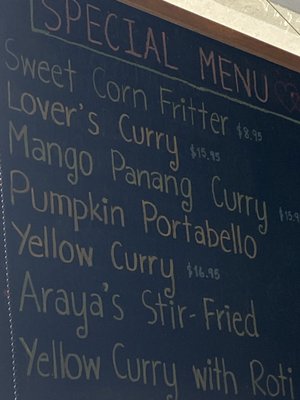 SPECIAL MENU
Sweet Corn Fritter $8.95
Lover's Curry $15.95
Mango Panang Curry
Pumpkin Portabello
Yellow Curry $16.95
Araya's Stir-Fried
Yellow Curry with Roti